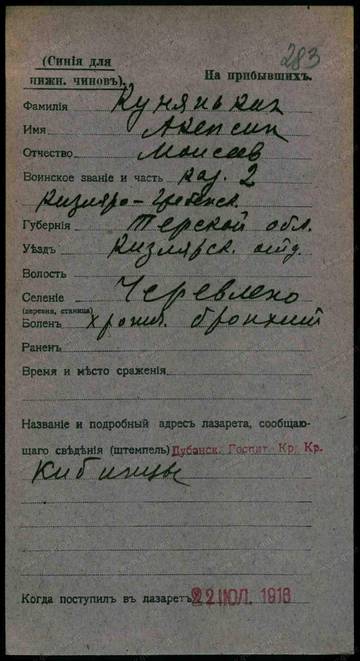 283
(Синія для
нижн. чиновъ).
На прибывшихъ.
Фамилія Кунянькин
Имя Алексин
Отчество Моисеев
Воинское званіе и часть каз. 2
Кизляро-Гребенск.
Губернія Терской обл.
Уѣздъ Кизлярск. отд.
Волость
Селеніе Червлено
(деревня, станица)
Боленъ хронич. бронхит
Раненъ
Время и мѣсто сраженія
Названіе и подробный адресъ лазарета, сообщаю-
щаго свѣдѣнія (штемпель) Кубанск. Госпит. Кр. Кр.
Кибинцы
Когда поступил въ лазаретъ 22 ІЮЛ. 1916